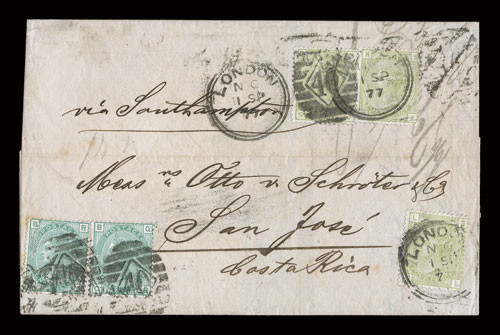 LONDON
N C
1 SP
SP
77
via Southampton
Mess rs Otto v. Schröter & Co
San José
Costa Rica
POSTAGE
LONDON
1 SP
7